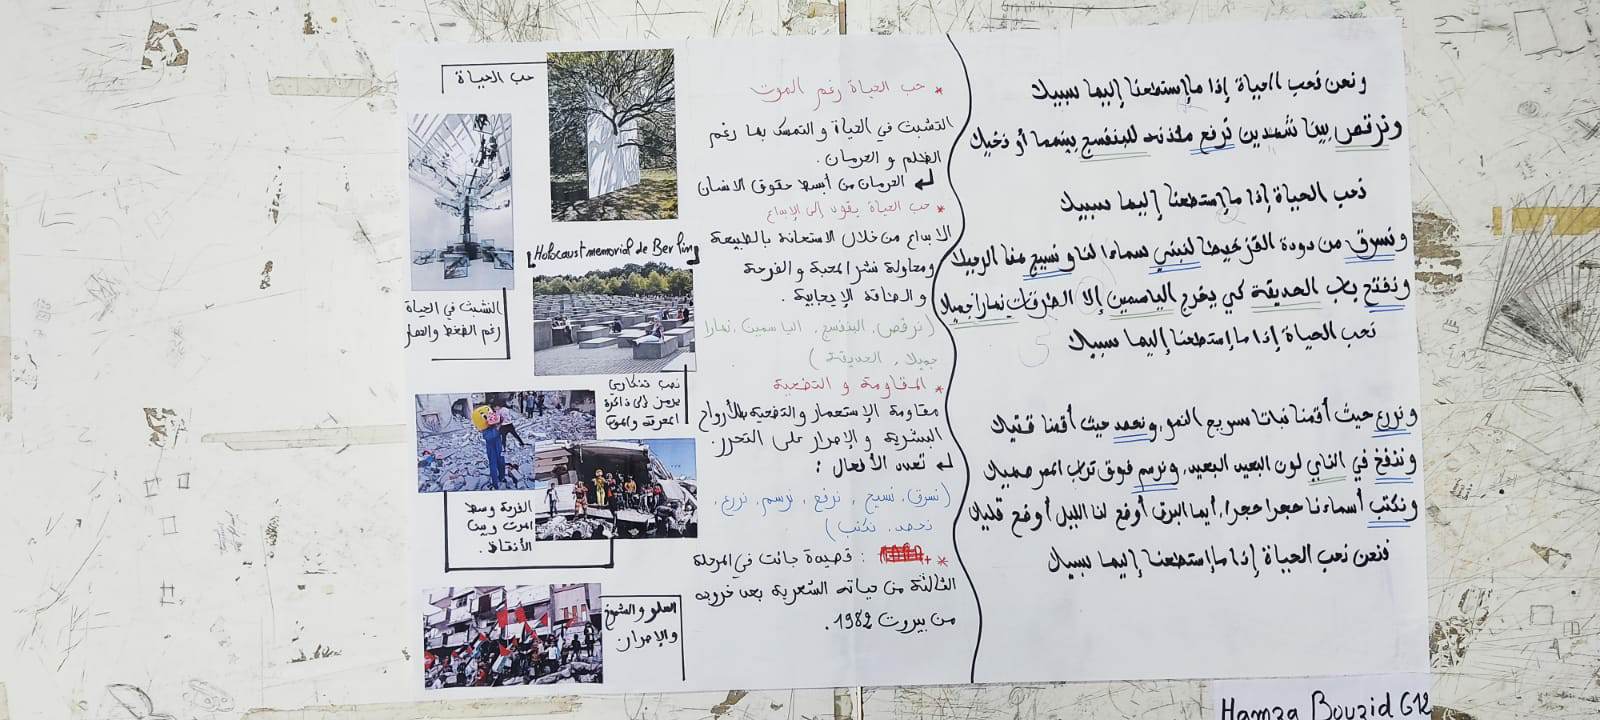 ونحن نحب الحياة إذا ما إستطعنا إليها سبيلا
ونرقص بين شهيدين نرفع مئذنة للبنفسج بينهما أو نخيلا
نحب الحياة إذا ما إستطعنا إليها سبيلا
ونسرق من دودة القز خيطا لنبني سماءا لنا و نسيج هذا الرحيلا
ونفتح باب الحديقة كي يخرج الياسمين إلى الطرقات نهارا جميلا
نحب الحياة إذا ما إستطعنا إليها سبيلا
ونزرع حيث أقمنا نباتا سريع النمو، ونحصد حيث أقمنا قتيلا
وننفخ في الناي لون البعيد البعيد، ونرسم فوق تراب الممر صهيلا
ونكتب أسماءنا حجرا حجرا، أيها البرق أوضح لنا الليل أوضح قليلا
فنحن نحب الحياة إذا ما إستطعنا إليها سبيلا
* حب الحياة رغم الموت
التشبث في الحياة و التمسك بها رغم
الظلم و الحرمان.
الحرمان من أبسط حقوق الانسان
* حب الحياة يقود إلى الإبداع
الابداع من خلال الاستعانة بالطبيعة
ومحاولة نشر المحبة و الفرحة
و الطاقة الإيجابية.
(نرقص، البنفسج، الياسمين، نهارا
جميلا، الحديقة)
* المقاومة و التضحية
مقاومة الإستعمار والتضحية بالأرواح
البشرية و الإصرار على التحرر
تعدد الأفعال:
(نسرق، نسيج، نرفع، نرسم، نزرع،
نحصد، نكتب)
* : قصيدة جائت في المرحلة
الثالثة من حياته الشعرية بعد خروجه
من بيروت 1982.
حب الحياة
التشبث في الحياة
رغم الضغط
[Holocaust memorial de Berlin]
نصب تذكاري
يرمز إلى ذاكرة
المحرقة والموت
الفرحة وسط
الموت وبين
الأنقاض.
العلو والشموخ
والإصرار
Hamza Bouzid G12